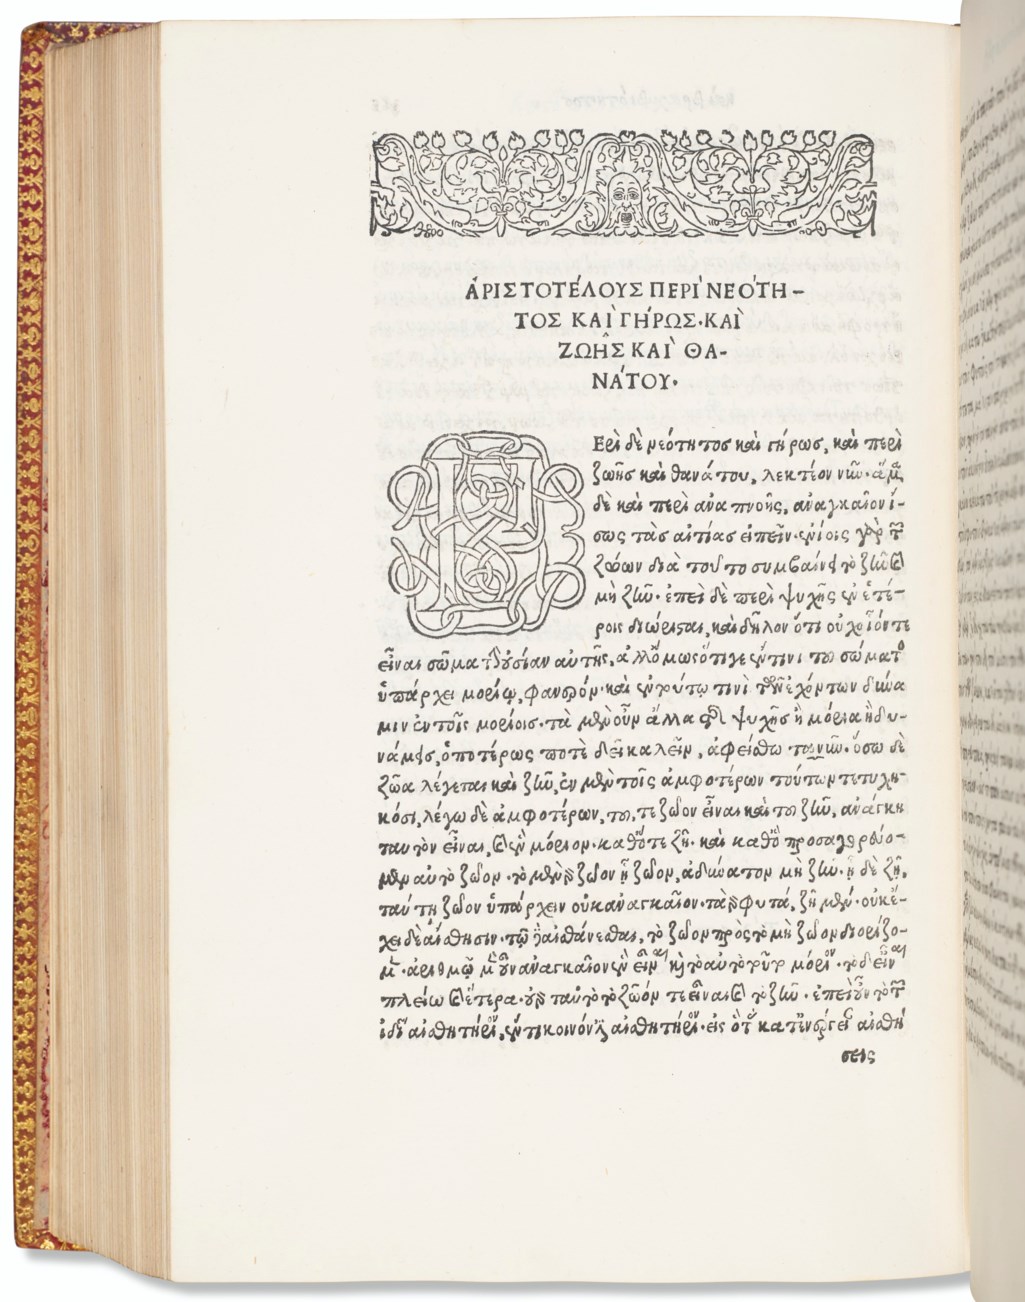 ἈΡΙΣΤΟΤΈΛΟΥΣ ΠΕΡῚ ΝΕΌΤΗ-
ΤΟΣ ΚΑῚ ΓΉΡΩΣ· ΚΑῚ
ΖΩΗ͂Σ ΚΑῚ ΘΑ-
ΝΆΤΟΥ.
Περὶ δὲ νεότητος καὶ γήρως, καὶ περὶ
ζωῆς καὶ θανάτου, λεκτέον νῦν· ἅμα
δὲ καὶ περὶ ἀναπνοῆς, ἀναγκαῖον ἴ-
σως τὰς αἰτίας εἰπεῖν· ἐνίοις γὰρ τῶν
ζώων διὰ τοῦτο συμβαίνει τὸ ζῆν καὶ
μὴ ζῆν· ἐπεὶ δὲ περὶ ψυχῆς ἐν ἑτέ-
ροις διώρισται, καὶ δῆλον ὅτι οὐχ οἷόν τε
εἶναι σῶμα τὴν οὐσίαν αὐτῆς, ἀλλ' ὅμως ὅτι γε ἔν τινι τοῦ σώματος
ὑπάρχει μορίῳ, φανερόν· καὶ ἐν τούτῳ τινὶ τῶν ἐχόντων δύνα
μιν ἐν τοῖς μορίοις· τὰ μὲν οὖν ἄλλα τῆς ψυχῆς ἢ μόρια ἢ δυ-
νάμεις, ὁποτέρως ποτὲ δεῖ καλεῖν, ἀφείσθω τανῦν· ὅσα δὲ
ζῶα λέγεται καὶ ζῆν, ἐν μὲν τοῖς ἀμφοτέρων τούτων τετυχη-
κόσι, λέγω δὲ ἀμφοτέρων, τοῦ, τε ζῶον εἶναι καὶ τοῦ ζῆν, ἀνάγκη
ταυτὸν εἶναι, καὶ ἓν μόριον· καθ' ὅ τε ζῆ· καὶ καθ' ὃ προσαγορεύο-
μεν αὐτὸ ζῶον· τὸ μὲν γὰρ ζῶον ᾗ ζῶον, ἀδύνατον μὴ ζῆν· ᾗ δὲ ζῆ,
ταύτῃ ζῶον ὑπάρχειν οὐκ ἀναγκαῖον· τὰ γὰρ φυτά, ζῆ μέν· οὐκ ἔ-
χει δὲ αἴσθησιν· τῷ δὲ αἰσθάνεσθαι, τὸ ζῶον πρὸς τὸ μὴ ζῶον διορίζο-
μεν· ἀριθμῷ μὲν οὖν ἀναγκαῖον ἓν εἶναι καὶ τὸ αὐτὸ τοῦτο μόριον· τὸ δ' εἶναι
πλείω καὶ ἕτερα· οὐ γὰρ ταὐτὸ τὸ ζῶόν τε εἶναι καὶ τὸ ζῆν· ἐπεὶ οὖν τῶν
σεις